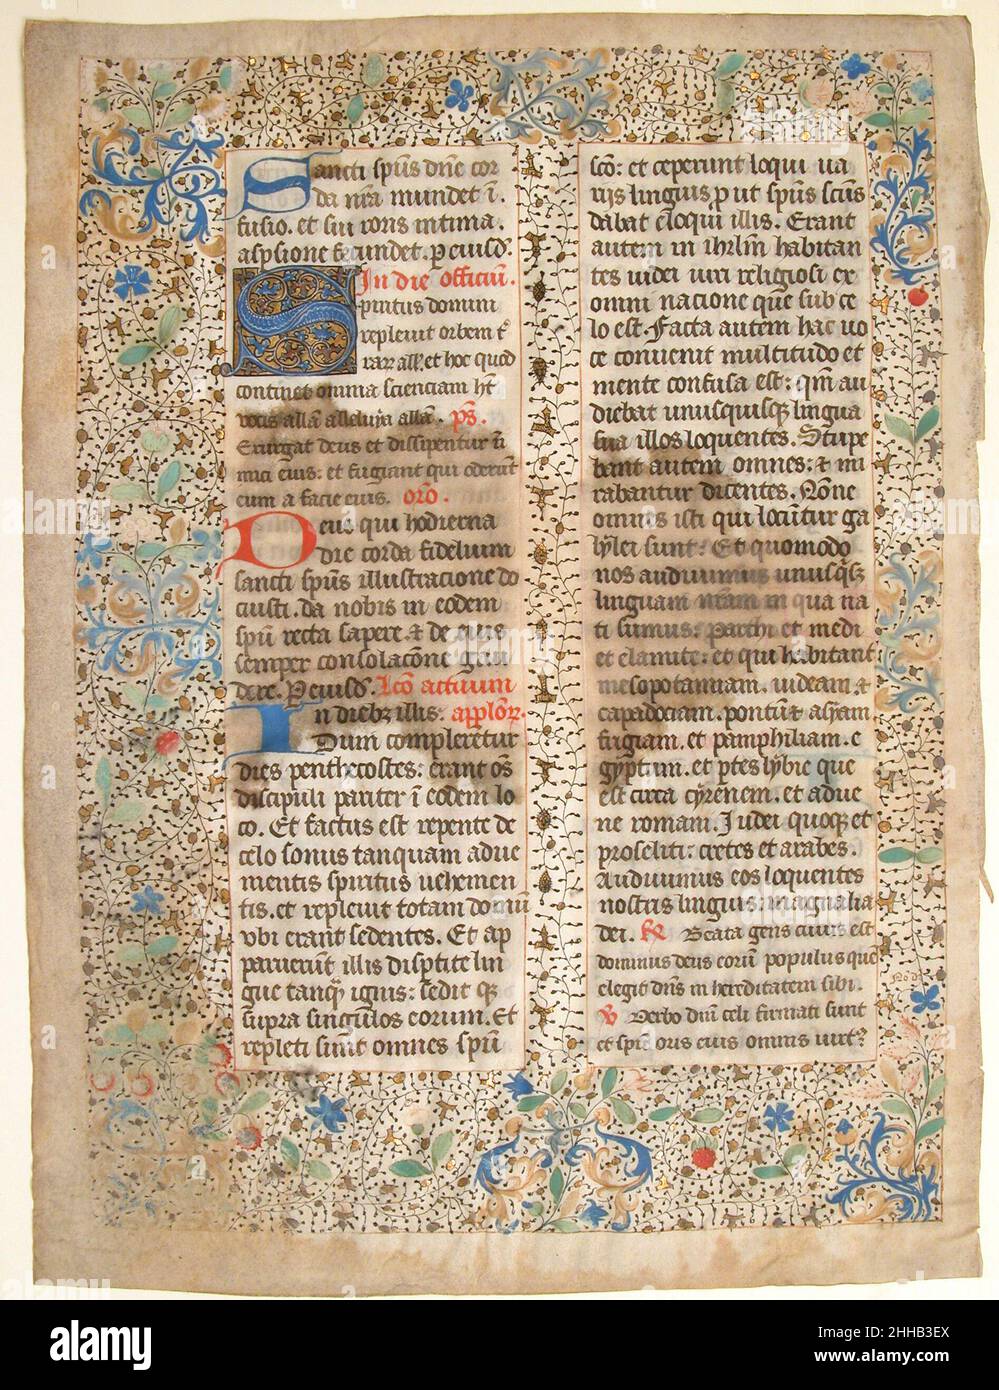 Sancti spūs dn̄e cor
da nr̄a mundet ī
fusio. et sui roris intima
aspsione fecundet. p eiusd̄
In die officiū.
Spiritus domini
repleuit orbem t̄
rarz all̄. et hoc quod
continet omnia scienciam ht̄
vocis allā alleluya allā. ps̄.
Exurgat deus et dissipentur īn
mici eius: et fugiant qui oderunt
eum a facie eius. orō.
Deus qui hodierna
die corda fidelium
sancti spūs illustracione do
cuisti. da nobis in eodem
spū recta sapere & de eius
semper consolacōne gau
dere. P eiusd̄. Lcō actuum
In diebz illis. apl̄orz.
Dum compleretur
dies penthecostes: erant oēs
discipuli pariter ī eodem lo
co. Et factus est repente de
celo sonus tanquam adue
mentis spiritus uehemen
tis. et repleuit totam domū
vbi erant sedentes. Et ap
paruerunt illis disptite lin
gue tanqz ignis: sedit qz
supra singulos eorum. Et
repleti sunt omnes spū
scō: et ceperunt loqui ua
rijs linguis p ut spūs scūs
dabat eloqui illis. Erant
autem in ihrlm̄ habitan
tes iudei uiri religiosi ex
omni nacione que sub ce
lo est. Facta autem hac uo
ce conuenit multitudo et
mente confusa est: qm̄ au
diebat unusquisqz lingua
sua illos loquentes. Stupe
bant autem omnes: & mi
rabantur dicentes. Nōne
omnes isti qui locūtur ga
lylei sunt: Et quomodo
nos audiuimus unusqsz
linguam nr̄am in qua na
ti sumus: Parthi et medi
et elamite: et qui habitant
mesopotamiam. iudeam &
capadociam. pontū & asyam
frigiam. et pamphiliam. e
gyptum. et ptes lybie que
est circa cyrenem. et adue
ne romani. Iudei quoqz et
proseliti: cretes et arabes.
Audiuimus eos loquentes
nostris linguis: magnalia
dei. Beata gens cuius est
dominus deus eorū populus que
elegit dn̄s in hereditatem sibi.
V Verbo dn̄i celi firmati sunt
et spū oris eius omnis uirtz
alamy
Image ID: 2HHB3EX
www.alamy.com